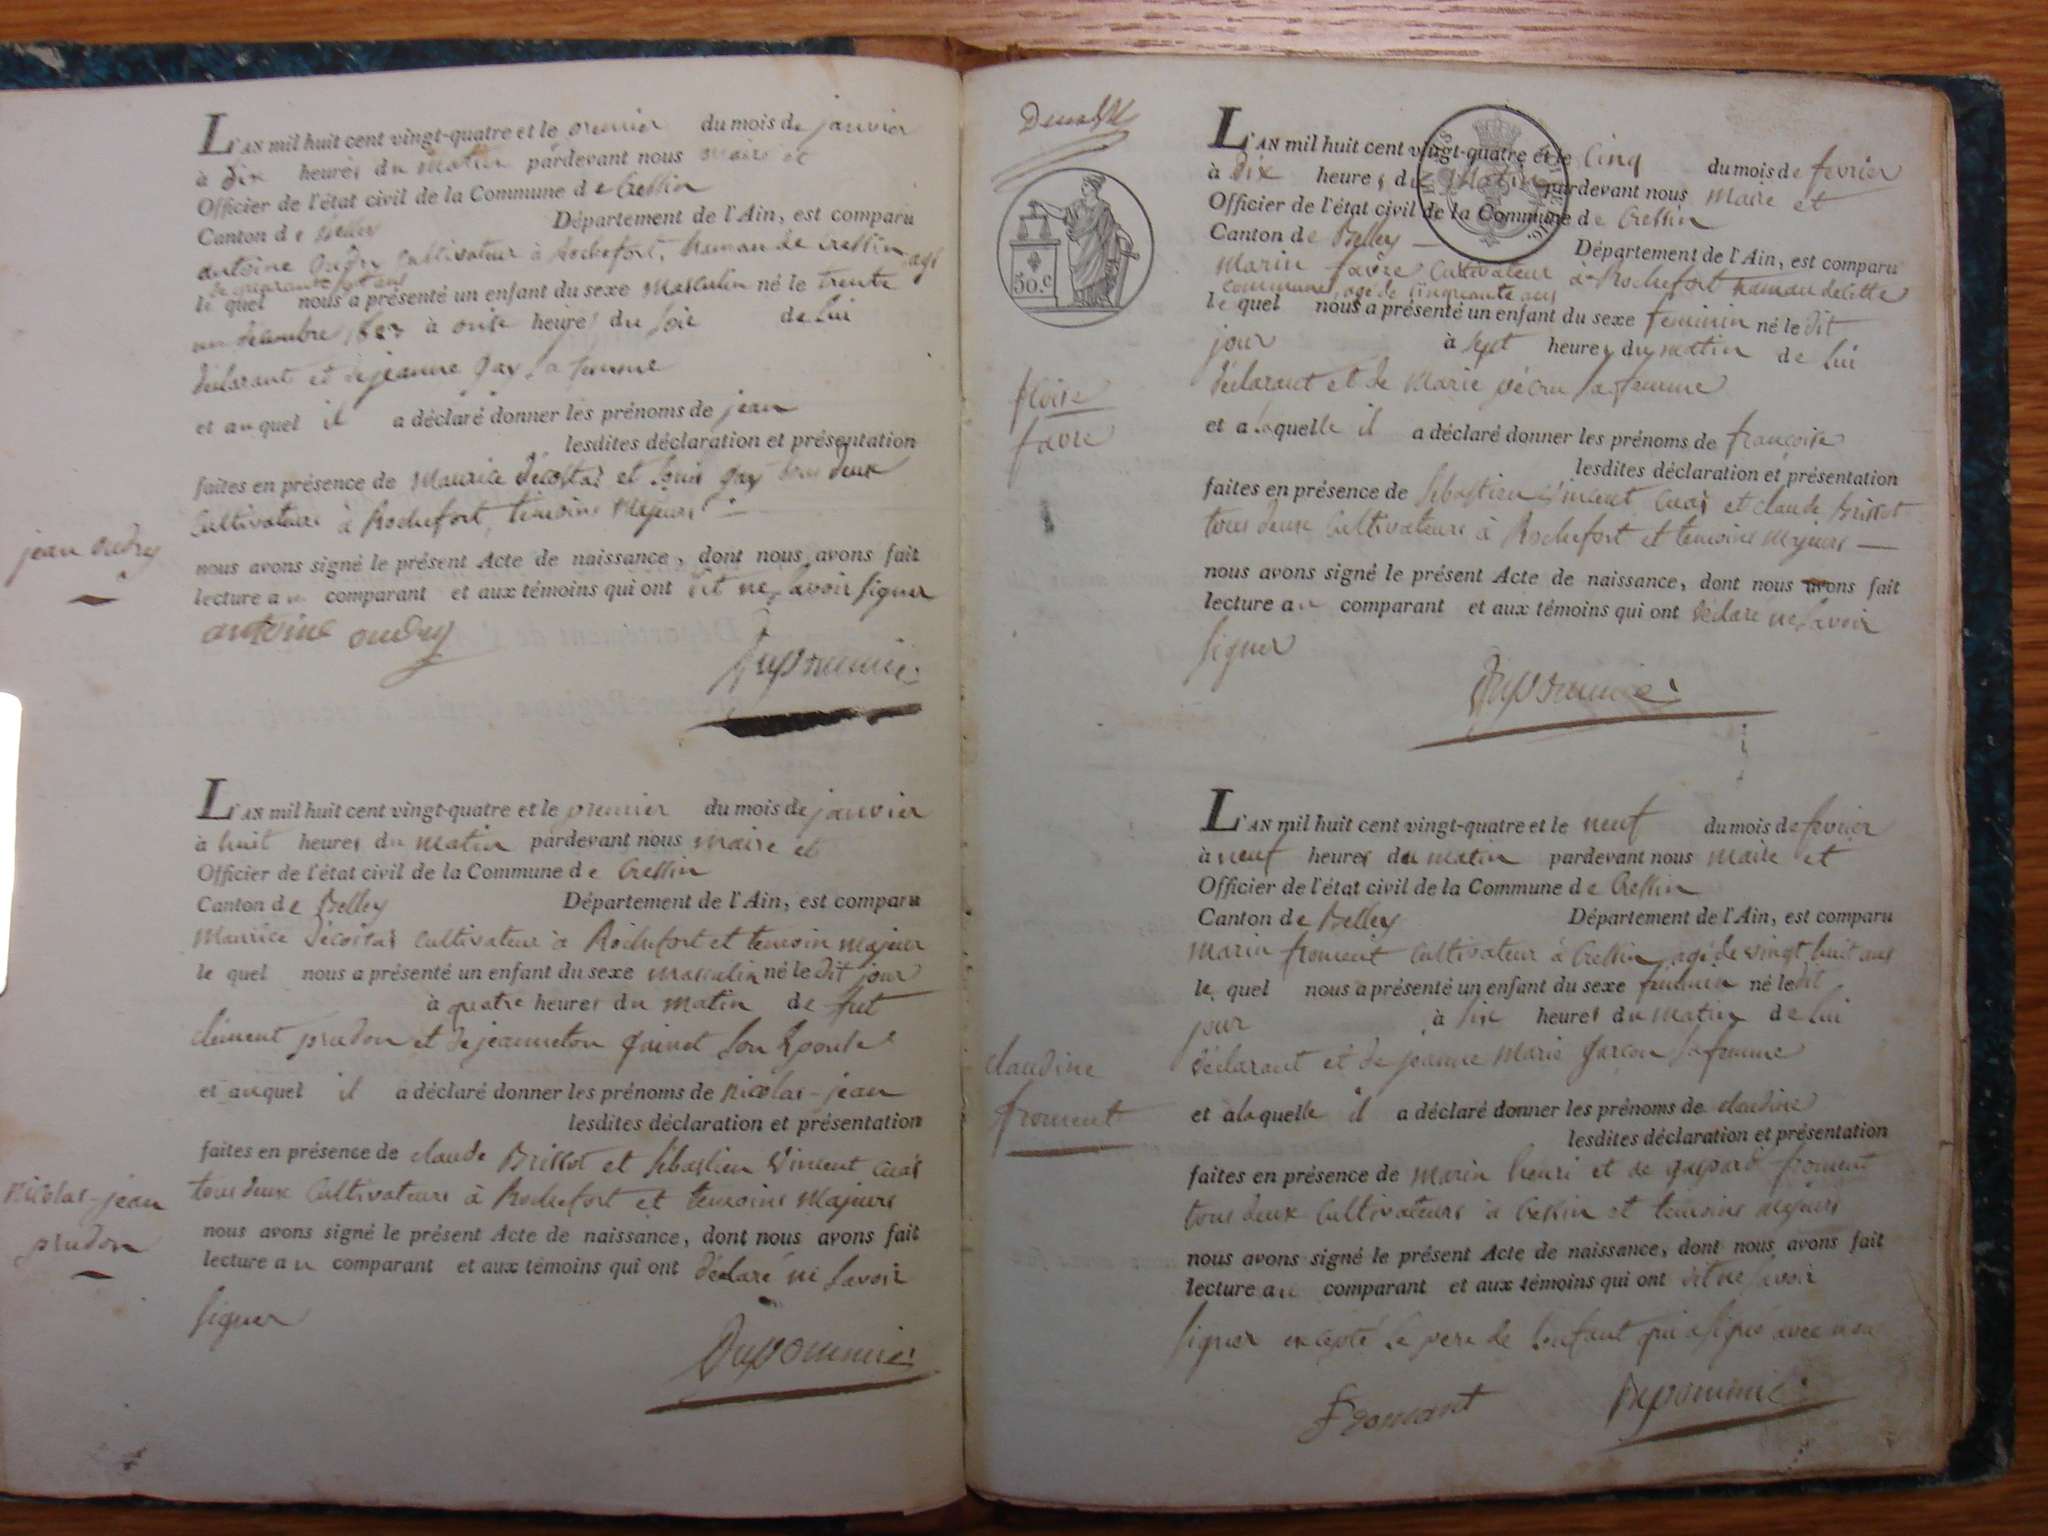 L'AN mil huit cent vingt-quatre et le premier du mois de janvier
à dix heures du matin pardevant nous maire et
Officier de l'état civil de la Commune de Cressin
Canton de Belley Département de l'Ain, est comparu
antoine oudry cultivateur à Rochefort, hamau de Cressin, agé
de quarante sept ans
le quel nous a présenté un enfant du sexe masculin né le trente
un décembre 1823 à onze heures du soir de lui
déclarant et de jeanne gay sa femme
et auquel il a déclaré donner les prénoms de jean
lesdites déclaration et présentation
faites en présence de Maurice Décostas et Louis gay tous deux
cultivateurs à Rochefort, temoins majeurs
jean oudry
nous avons signé le présent Acte de naissance, dont nous avons fait
lecture au comparant et aux témoins qui ont dit ne savoir signer
antoine oudry
Dupommier
L'AN mil huit cent vingt-quatre et le premier du mois de janvier
à huit heures du matin pardevant nous maire et
Officier de l'état civil de la Commune de Cressin
Canton de Belley Département de l'Ain, est comparu
Maurice Décostas cultivateur à Rochefort et temoin majeur
le quel nous a présenté un enfant du sexe masculin né le dit jour
à quatre heures du matin de fut
clément prudon et de jeanneton quinet son épouse
et auquel il a déclaré donner les prénoms de nicolas-jean
lesdites déclaration et présentation
faites en présence de claude Brissot et Sébastien Vincent cuas
tous deux cultivateurs à Rochefort et temoins majeurs
nicolas-jean
prudon
nous avons signé le présent Acte de naissance, dont nous avons fait
lecture au comparant et aux témoins qui ont déclaré ne savoir
signer
Dupommier
L'AN mil huit cent vingt-quatre et le cinq du mois de fevrier
à dix heures du matin pardevant nous maire et
Officier de l'état civil de la Commune de Cressin
Canton de Belley Département de l'Ain, est comparu
marin favre cultivateur à Rochefort hamau de cette
commune, agé de cinquante ans
50.c
le quel nous a présenté un enfant du sexe feminin né le dit
jour à sept heures du matin de lui
déclarant et de Marie sa femme
favre
et a laquelle il a déclaré donner les prénoms de françoise
lesdites déclaration et présentation
faites en présence de Sébastien Vincent cuas et claude Brissot
tous deux cultivateurs à Rochefort et temoins majeurs
nous avons signé le présent Acte de naissance, dont nous avons fait
lecture au comparant et aux témoins qui ont déclaré ne savoir
signer
Dupommier
L'AN mil huit cent vingt-quatre et le neuf du mois de fevrier
à neuf heures du matin pardevant nous maire et
Officier de l'état civil de la Commune de Cressin
Canton de Belley Département de l'Ain, est comparu
marin froment cultivateur à Cressin agé de vingt huit ans
le quel nous a présenté un enfant du sexe feminin né le dit
jour à six heures du matin de lui
déclarant et de jeanne marie garçon sa femme
claudine
froment
et à laquelle il a déclaré donner les prénoms de claudine
lesdites déclaration et présentation
faites en présence de marin henri et de gaspard froment
tous deux cultivateurs à Cressin et temoins majeurs
nous avons signé le présent Acte de naissance, dont nous avons fait
lecture au comparant et aux témoins qui ont dit ne savoir
signer excepté le pere de l'enfant qui a signé avec nous
Froment
Dupommier